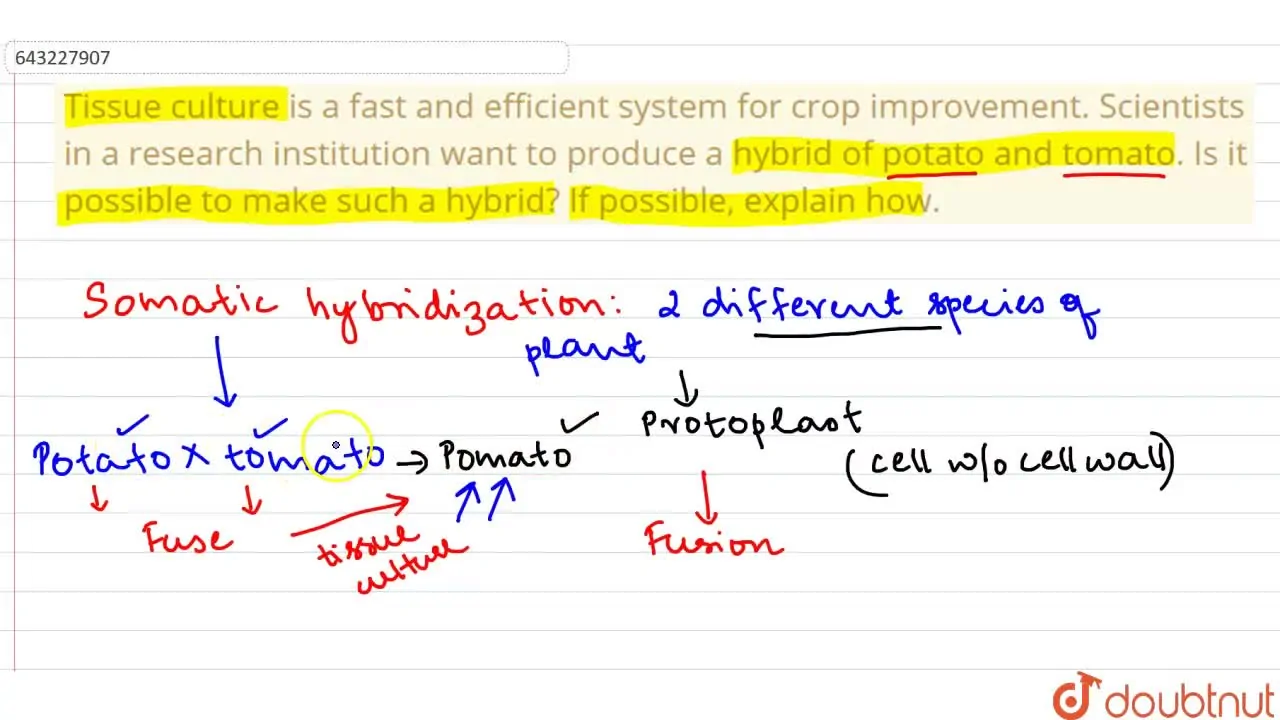 643227907
Tissue culture is a fast and efficient system for crop improvement. Scientists
in a research institution want to produce a hybrid of potato and tomato. Is it
possible to make such a hybrid? If possible, explain how.
Somatic hybridization: 2 different species of
plant
Protoplast
(cell w/o cell wall)
Fusion
Potato x tomato → Pomato
Fuse
tissue
culture
doubtnut